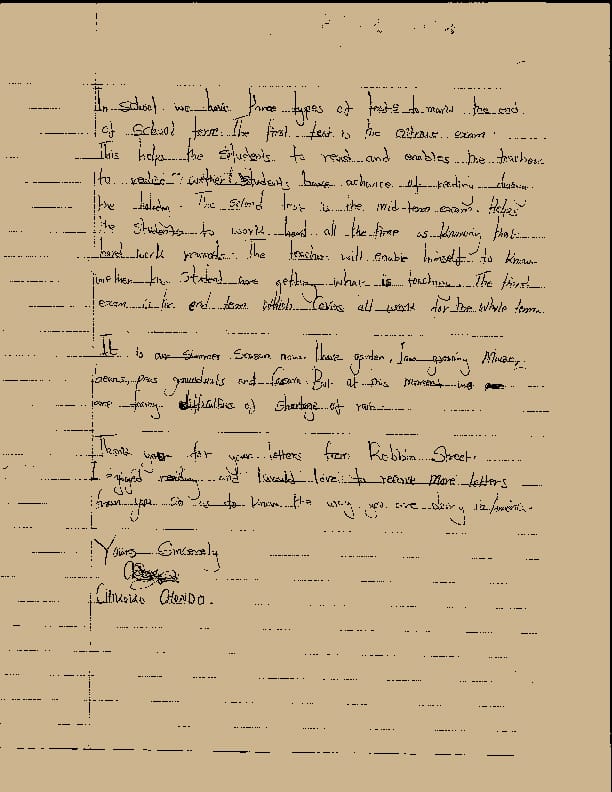 In School we have three types of tests to mark the end
of School term. The first test is the exam.
This helps the Students to read and enables the teachers
to realise wether Students have achance of reading during
the holiday. The Second test is the mid-term exam. Helps
the Students to work hard all the time as knowing that
hard work rewards. The teacher will enable himself to know
wether the Student are getting what is teaching. The third
exam is the end term which Covers all work for the whole term.
It is our Summer Season now. I have garden, I am growing Maize,
beans, peas groundnuts and Cassava. But at this moment we
are facing difficulties of Shortage of rain.
Thank you for your letters from Robbin Street.
I enjoyed reading and I would love to receive more letters
from you so as to know the way you are doing in America.
Yours Sincerely